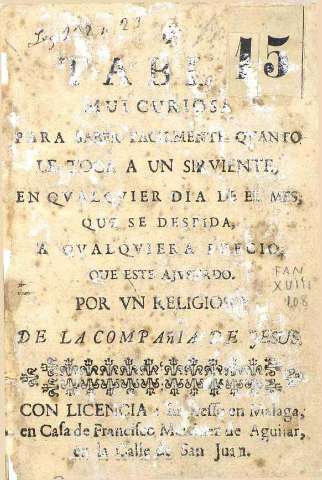 15
TABL
MUI CURIOSA
PARA SABER FACILMENTE QUANTO
LE TOCA A UN SIRVIENTE,
EN QVALQVIER DIA DE EL MES,
QUE SE DESPIDA,
A QVALQVIERA PRECIO,
QUE ESTE AJUSTADO.
FAN
XVIII
108
POR VN RELIGIOSO
DE LA COMPAÑIA DE JESUS.
CON LICENCIA: en Malaga,
en Casa de Francisco de Aguilar,
en la Calle de San Juan.